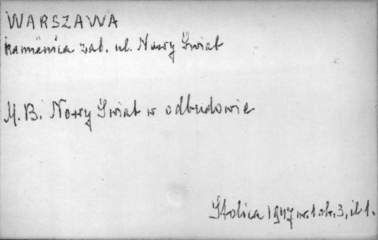 WARSZAWA
kamienica zab. ul. Nowy Świat
M.B. Nowy Świat w odbudowie
Stolica 1947 nr. 1. str. 3, il 1.